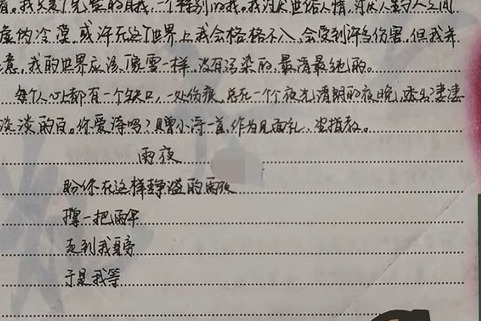 着。我只是了完整的自我,一个特别的我。我讨厌世俗人情,讨厌人与人之间
虚伪的冷漠,或许在这个世界上我会格格不入,会受到许多伤害,但我并
意,我的世界应该像雪一样,没有污染的,最清最纯的。
每个人心上都有一个缺口,一处伤痕,总在一个夜光清朗的夜晚,透出凄凄
淡淡的白。你爱诗吗?赠小诗一首,作为见面礼,望指教。
雨夜
盼你在这样静谧的雨夜
撑一把雨伞
来到我身旁
于是我等